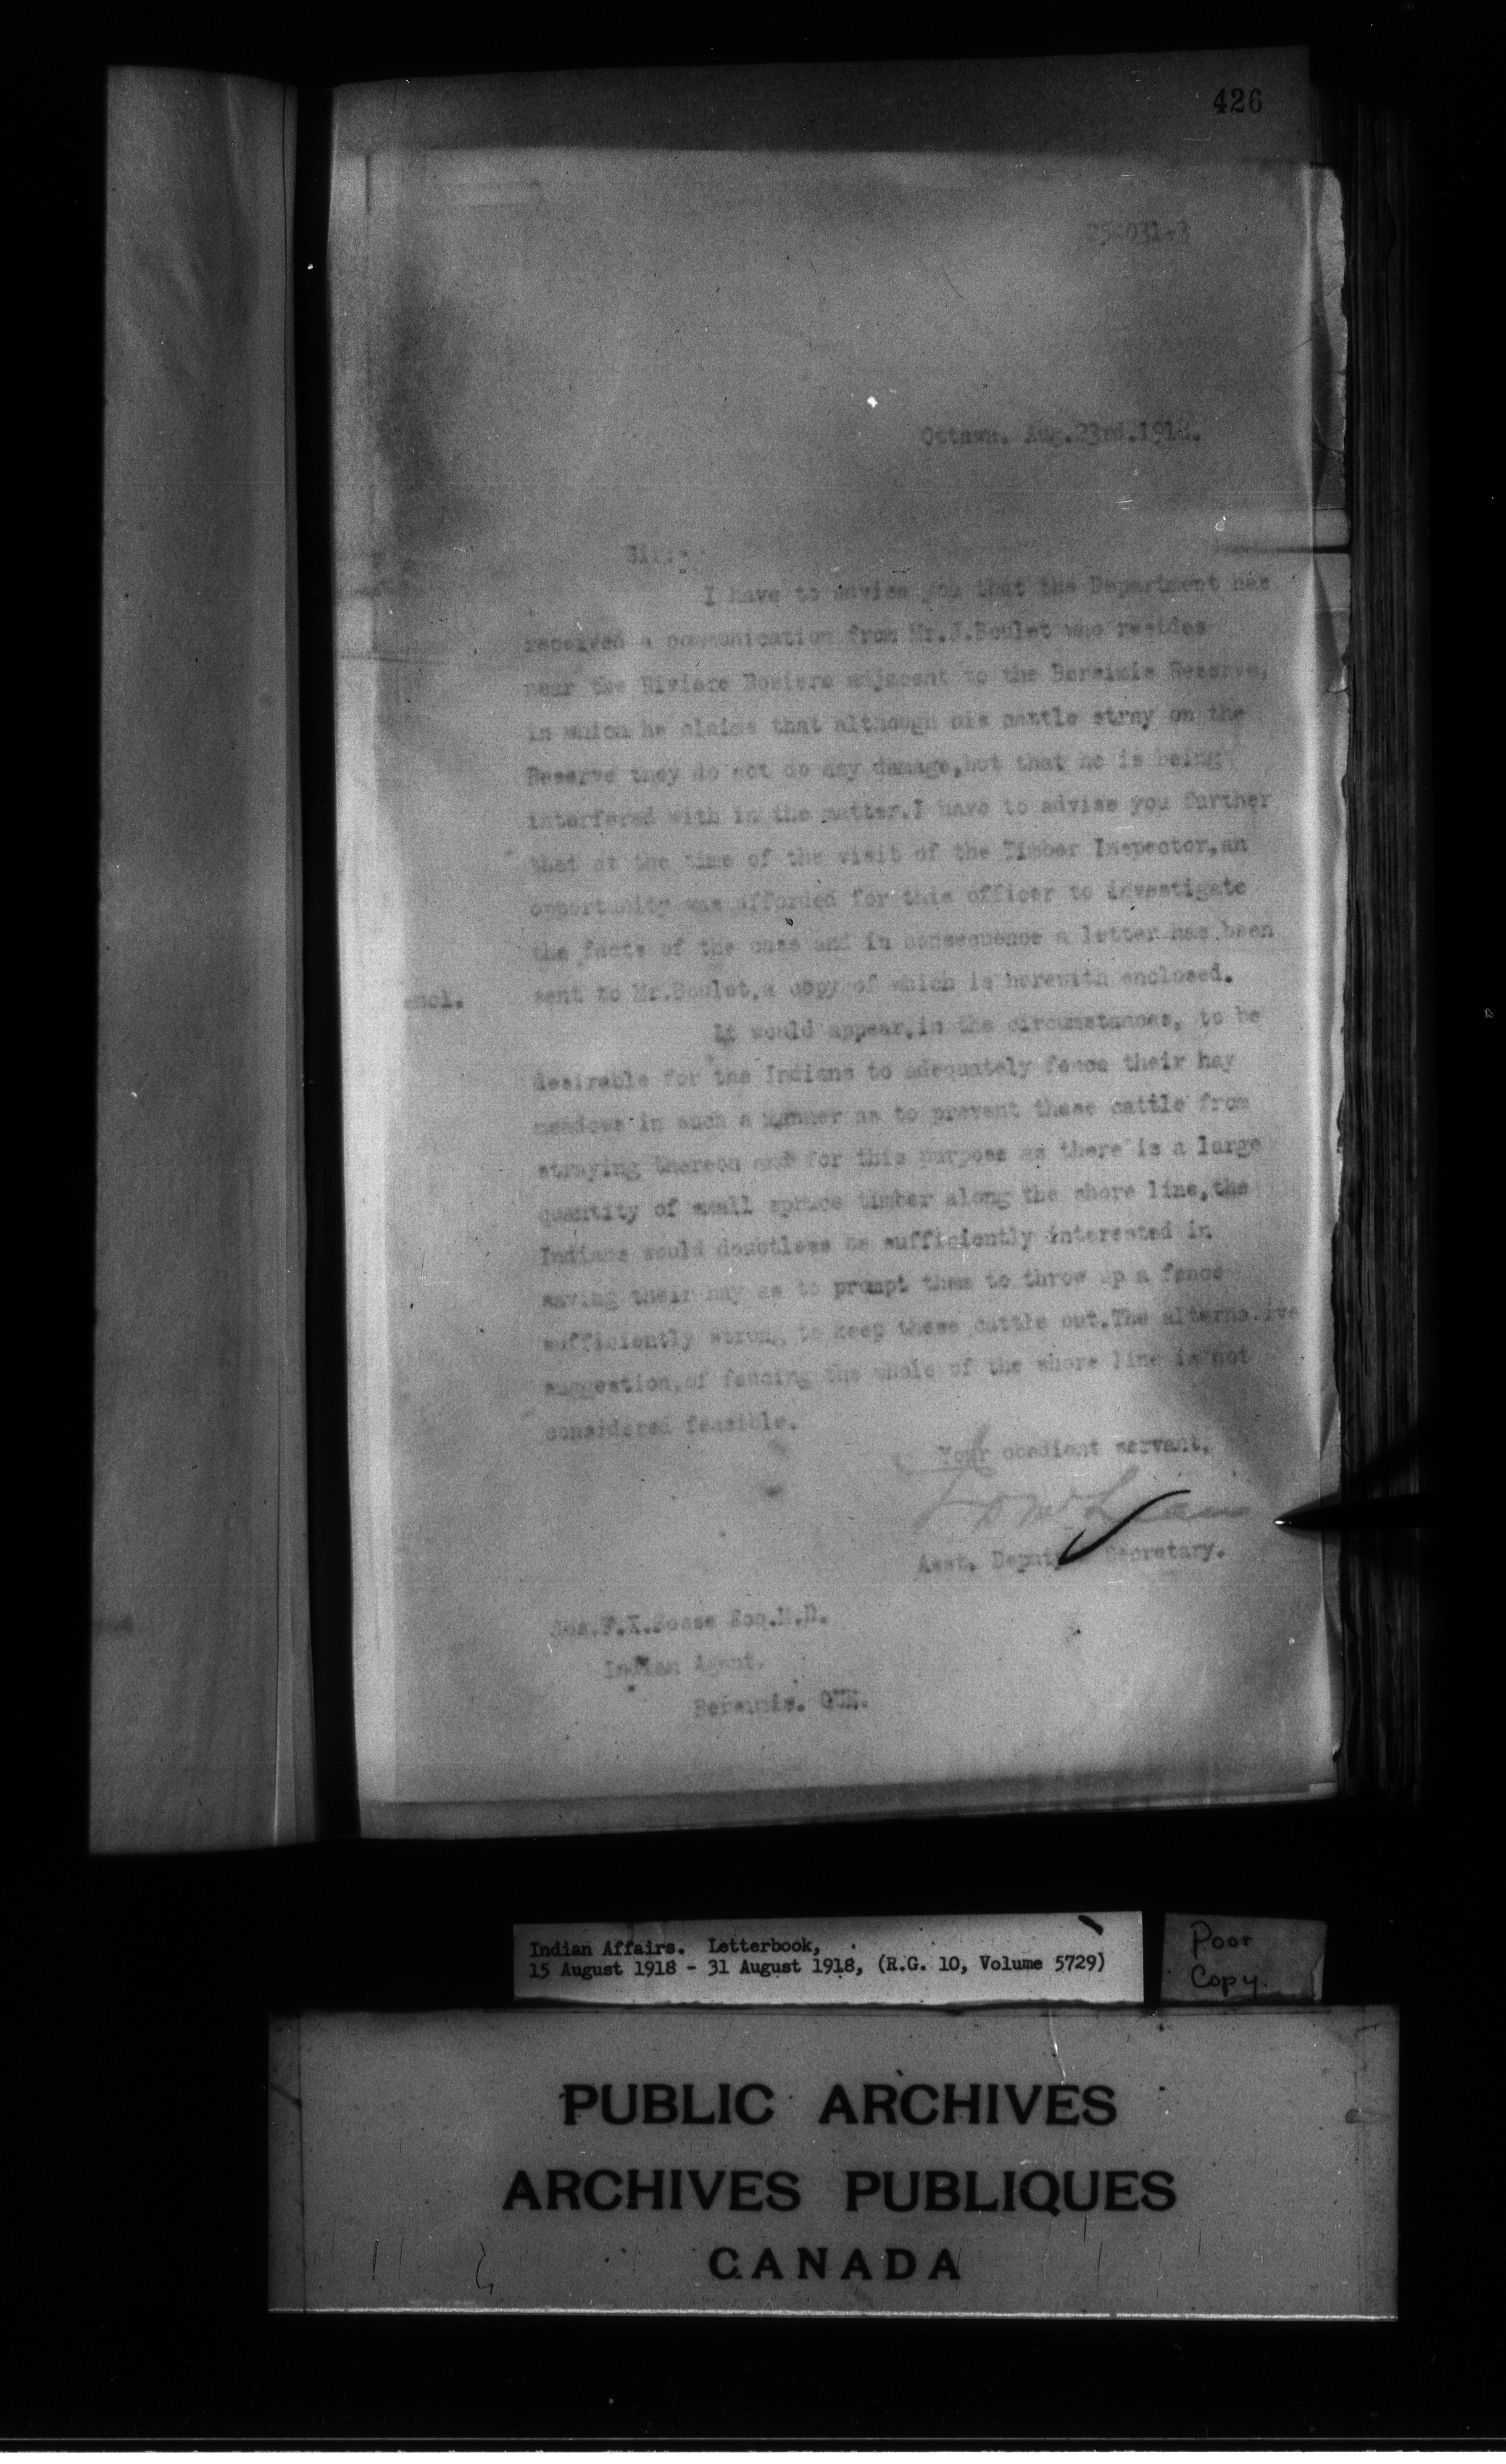 426
Ottawa. Aug.23rd.1918.
Sir:-
I have to advise you that the Department has
received a communication from Mr.J.Boulet who resides
near the Riviere Rosiere adjacent to the Bersimis Reserve,
in which he claims that although his cattle stray on the
Reserve they do not do any damage,but that he is being
interfered with in the matter.I have to advise you further
that at the time of the visit of the Timber Inspector,an
opportunity was afforded for this officer to investigate
the facts of the case and in consequence a letter has been
encl. sent to Mr.Boulet,a copy of which is herewith enclosed.
It would appear,in the circumstances, to be
desirable for the Indians to adequately fence their hay
meadows in such a manner as to prevent these cattle from
straying thereon and for this purpose as there is a large
quantity of small spruce timber along the shore line,the
Indians would doubtless be sufficiently interested in
saving their hay as to prompt them to throw up a fence
sufficiently strong to keep these cattle out.The alternative
suggestion,of fencing the whole of the shore line is not
considered feasible.
Your obedient servant,
Asst. Deputy Secretary.
Jos.F.X.Bosse Esq.M.D.
Indian Agent.
Bersimis. QUE.
Indian Affairs. Letterbook,
15 August 1918 - 31 August 1918, (R.G. 10, Volume 5729)
Poor
Copy.
PUBLIC ARCHIVES
ARCHIVES PUBLIQUES
CANADA